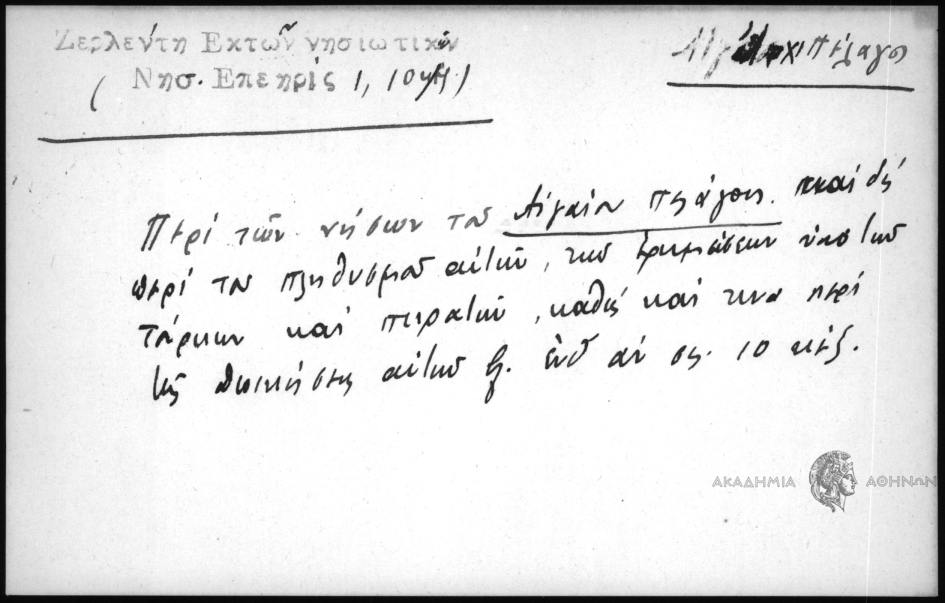 Ζερλέντη Εκτῶν νησιωτικῶν
( Νησ. Επετηρίς 1, 10
Ἀρχιπέλαγος
Περί τῶν νήσων του Αἰγαίου Πελάγους καί δή
περί του πληθυσμοῦ αὐτῶν, των ἐρημώσεων ὑπό των
τούρκων καί πειρατῶν, καθώς καί τινα περί
της διοικήσεως αὐτῶν ἐνθ' ἀν. σελ. 10 κ.ἑξ.
ΑΚΑΔΗΜΙΑ ΑΘΗΝΩΝ